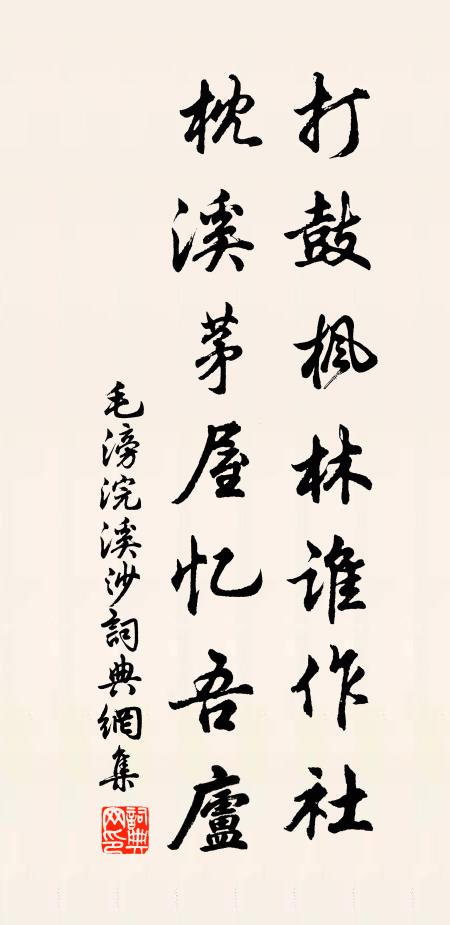 打鼓枫林谁作社
枕溪茅屋忆吾廬
毛滂浣溪沙詞典網集
詞典网印